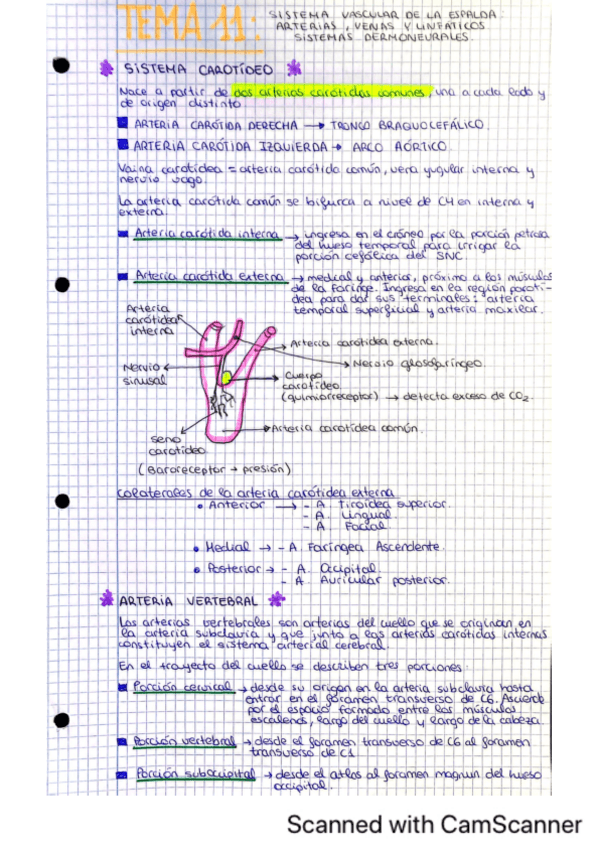 TEMA 11:
SISTEMA VASCULAR DE LA ESPALDA:
ARTERIAS, VENAS Y LINFÁTICOS
SISTEMAS DERMONEURALES.
SISTEMA CAROTÍDEO
Nace a partir de dos arterias carótidas comunes, una a cada lado y
de origen distinto
ARTERIA CARÓTIDA DERECHA → TRONCO BRAQUOCEFÁLICO.
ARTERIA CARÓTIDA IZQUIERDA → ARCO AÓRTICO.
Vaina carotídea = arteria carótida común, vena yugular interna y
nervio vago.
La arteria carótida común se bifurca a nivel de C4 en interna y
externa.
Arteria carótida interna → ingresa en el cráneo por la porción petrosa
del hueso temporal para irrigar la
porción cefálica del SNC.
Arteria carótida externa → medial y anterior, próximo a los músculos
de la faringe. Ingresa en la región paroti-
dea para dar sus terminales: arteria
temporal superficial y arteria maxilar.
Arteria
carótidea
interna
Arteria carótidea externa.
Nervio glosofaríngeo.
Nervio
sinusal
Cuerpo
carotídeo
(quimiorreceptor) → detecta exceso de CO2.
Arteria carotídea común.
seno
carotídeo
(Baroreceptor → presión)
colaterales de la arteria carótidea externa
• Anterior → - A. Tiroidea superior.
- A. Lingual.
- A. Facial.
• Medial → - A. Faríngea Ascendente.
• Posterior → - A. Occipital.
- A. Auricular posterior.
ARTERIA VERTEBRAL
Las arterias vertebrales son arterias del cuello que se originan en
la arteria subclavia y que junto a las arterias carótidas internas
constituyen el sistema arterial cerebral.
En el trayecto del cuello se describen tres porciones:
Porción cervical → desde su origen en la arteria subclavia hasta
entrar en el foramen transverso de C6. Asciende
por el espacio formado entre los músculos
escalenos, largo del cuello y largo de la cabeza.
Porción vertebral → desde el foramen transverso de C6 al foramen
transverso de C1
Porción suboccipital → desde el atlas al foramen magnun del hueso
occipital.
Scanned with CamScanner